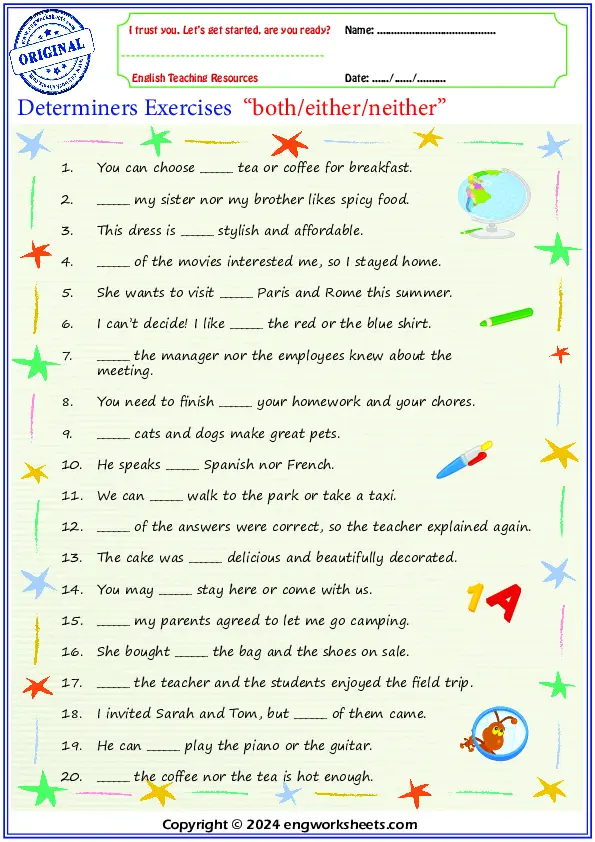 ORIGINAL
I trust you. Let's get started, are you ready?
Name: ..........................................
English Teaching Resources
Date: ....../....../..........
Determiners Exercises “both/either/neither”
1. You can choose _____ tea or coffee for breakfast.
2. _____ my sister nor my brother likes spicy food.
3. This dress is _____ stylish and affordable.
4. _____ of the movies interested me, so I stayed home.
5. She wants to visit _____ Paris and Rome this summer.
6. I can't decide! I like _____ the red or the blue shirt.
7. _____ the manager nor the employees knew about the
meeting.
8. You need to finish _____ your homework and your chores.
9. _____ cats and dogs make great pets.
10. He speaks _____ Spanish nor French.
11. We can _____ walk to the park or take a taxi.
12. _____ of the answers were correct, so the teacher explained again.
13. The cake was _____ delicious and beautifully decorated.
14. You may _____ stay here or come with us.
15. _____ my parents agreed to let me go camping.
16. She bought _____ the bag and the shoes on sale.
17. _____ the teacher and the students enjoyed the field trip.
18. I invited Sarah and Tom, but _____ of them came.
19. He can _____ play the piano or the guitar.
20. _____ the coffee nor the tea is hot enough.
1A
Copyright © 2024 engworksheets.com